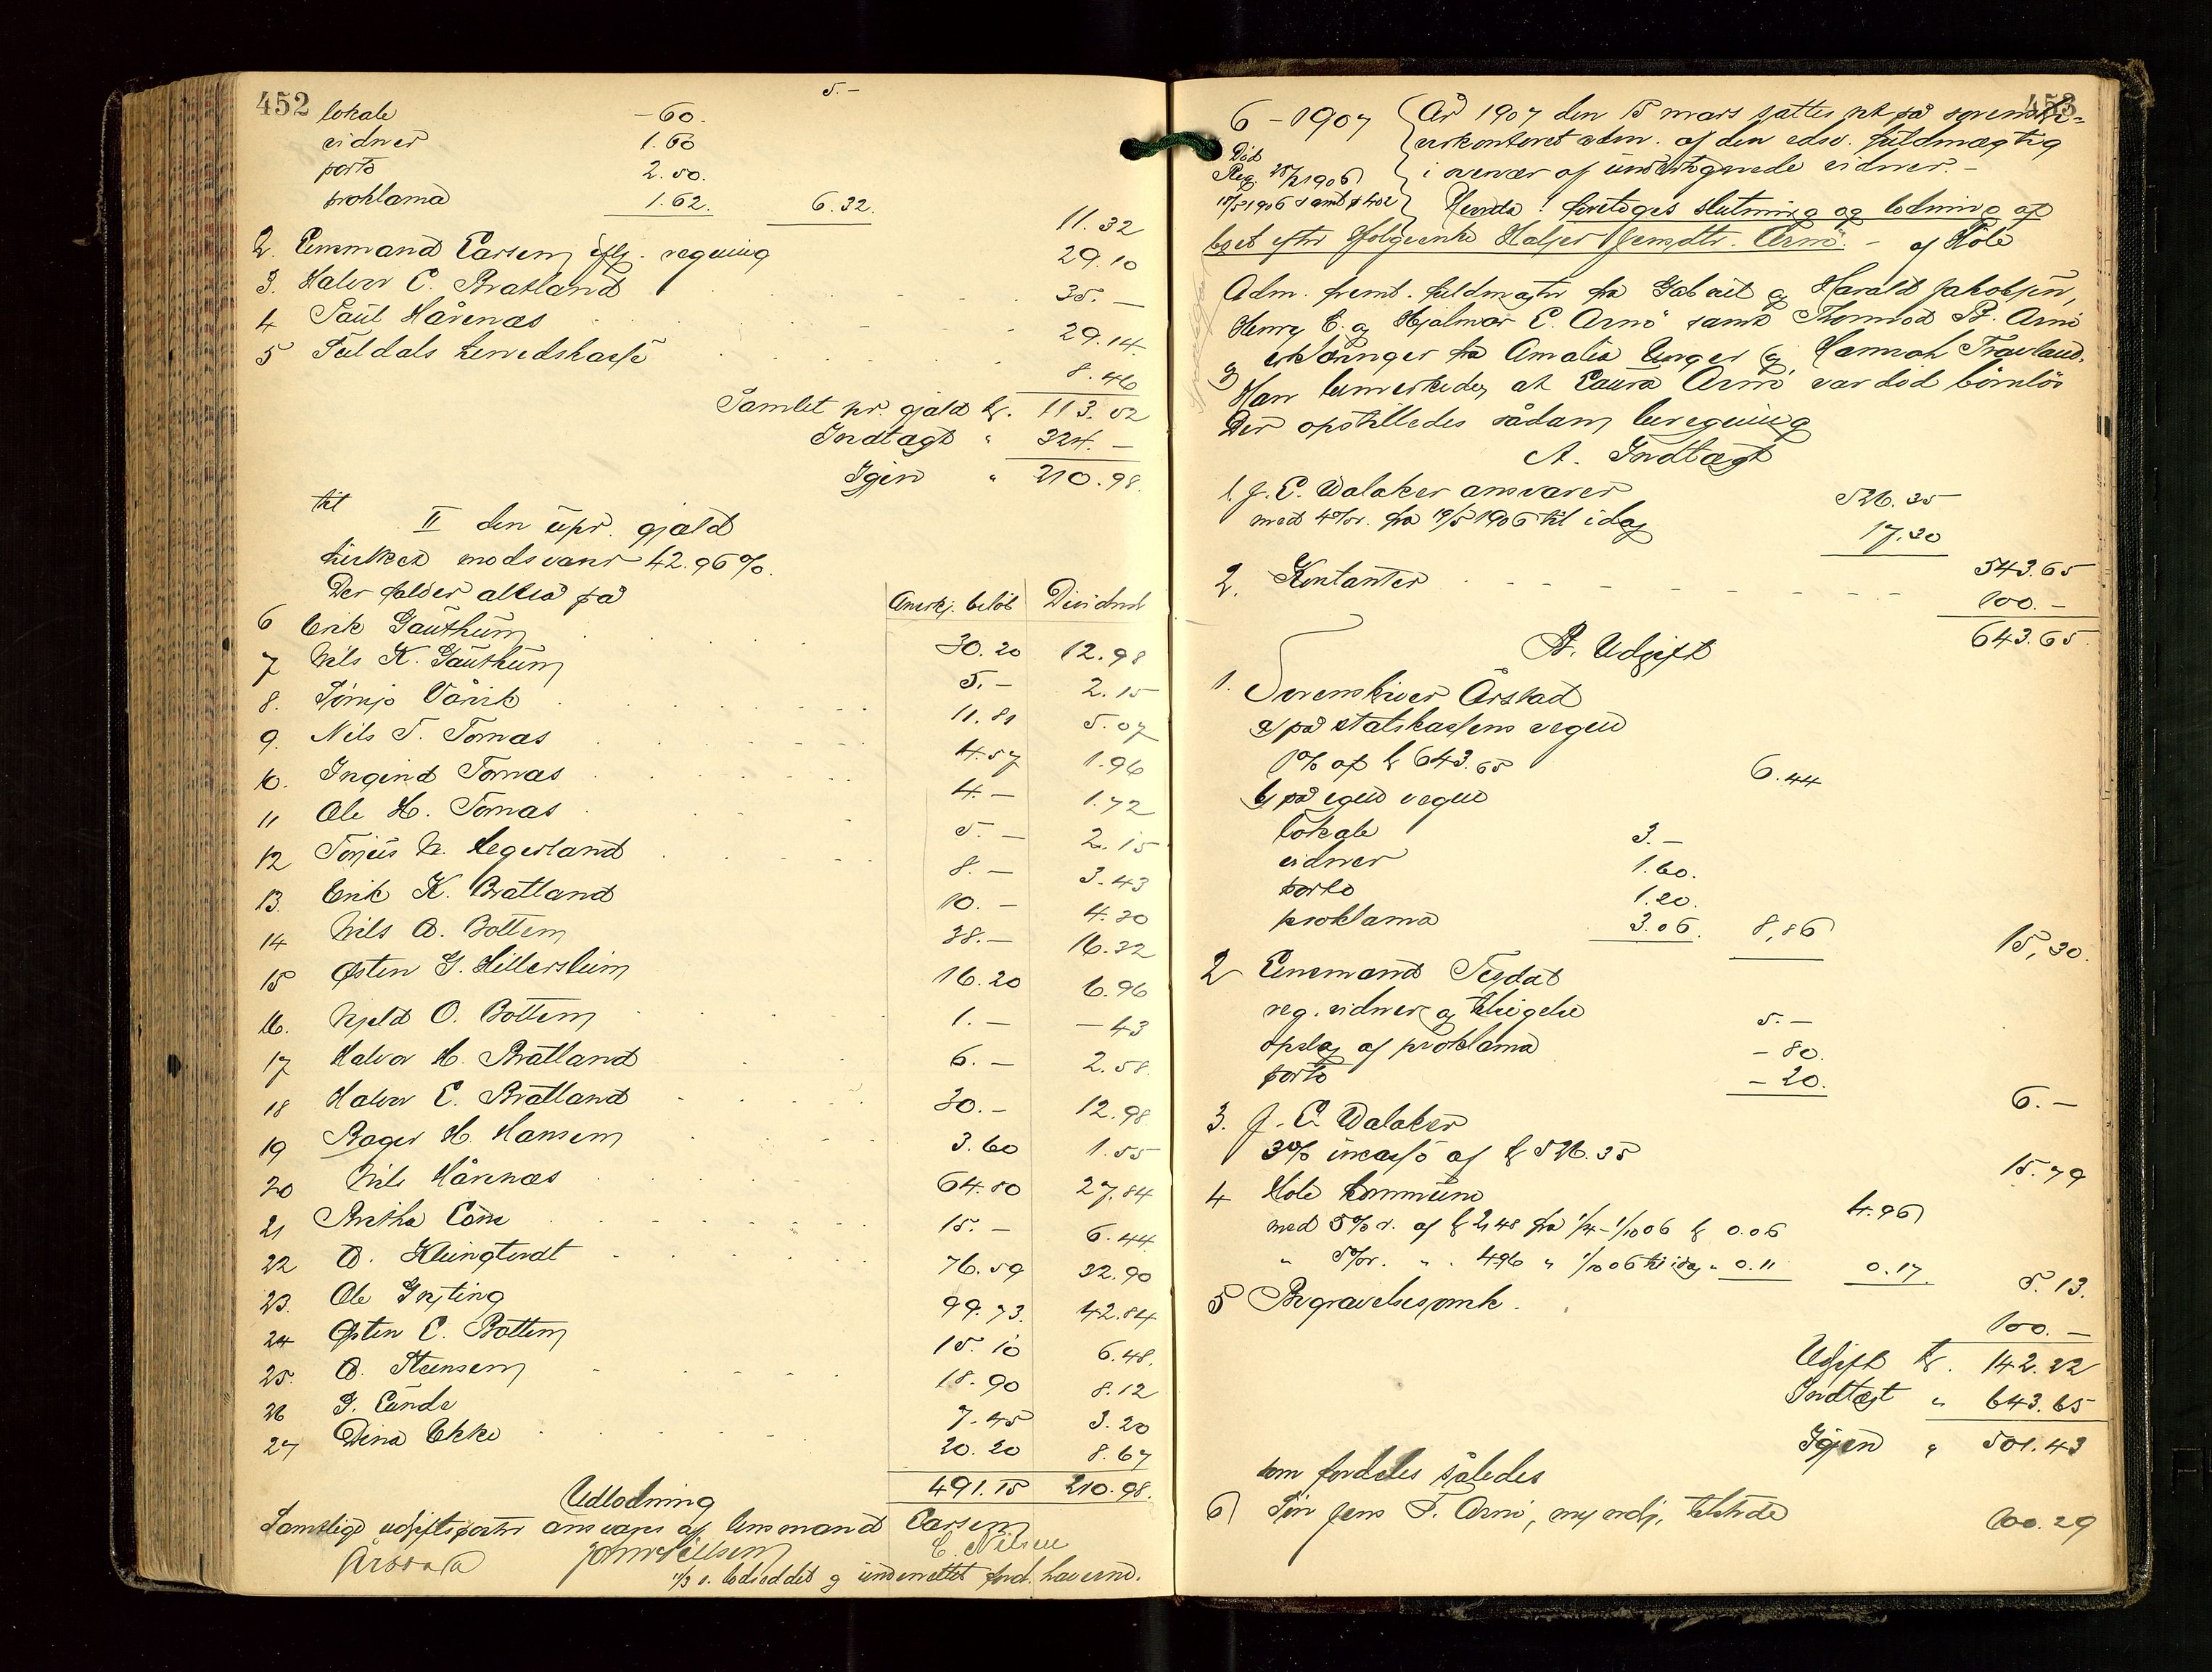 452
5.-
lokale -60.
vidner 1.60
porto 2.50.
proklama 1.62. 6.32.
11.32
2. Lensmand Larsen iflg. regning 29.10
3. Halvor E. Bratland 35.-
4 Paul Hårenæs 29.14
5 Suldals herredskasse 8.46
Samlet pr. gjæld kr. 113.02
Indtægt " 324.-
Igjen " 210.98.
til
II den upr. gjæld
hvilket modsvarer 42.96%.
Der falder altså på
Anerkj. beløb Dividend
6 Erik Gauthun 30.20 12.98
7 Nils K. Gauthun 5.- 2.15
8. Vårvik 11.81 5.07
9. Nils T. Tornæs 4.57 1.96
10. Ingeind Tornæs 4.- 1.72
11 Ole H. Tornæs 5.- 2.15
12 N. Hegerland 8.- 3.43
13. Erik K. Bratland 10.- 4.30
14 Nils A. Bottem 38.- 16.32
15 Østen G. Hillersheim 16.20 6.96
16. Njeld O. Bottem 1.- -43
17 Halvor H. Bratland 6.- 2.58.
18 Halvor E. Bratland 30.- 12.98
19 Børger H. Hansen 3.60 1.55
20 Nils Hårenæs 64.80 27.84
21 Bertha 15.- 6.44
22 A. 76.59 32.90
23. Ole Grjting 99.73. 42.84
24 Østen E. Bottem 15.10 6.48.
25. A. Steensen 18.90 8.12
26 G. Lunde 7.45 3.20
27 Dina Ekke 20.20 8.67
491.15 210.98.
Udlodning
Samtlige udgiftsposter ansvares af lensmand Larsen
Årstad John Nilsen E. Nilsen
11/3 s. lodseddel og underrettet ford. haverne.
453
6 - 1907
Død
Reg. 28/2 1906
År 1907 den 15 mars sattes ret på sorenskri=
verkontoret adm. af den edsv. fuldmægtig
i overvær af undertegnede vidner. -
Hvorda! foretoges slutning og lodning af
boet efter Jensdtr. Arnø. - af Hole
Adm. freml. fuldmagter fra Gabriel og Harald Jakobsen,
Henry E. og Hjalmar E. Arnø samt Thormod B. Arnø
og erklæringer fra Amalia Unger og Hannah Travland.
Han bemerkede, at Laura Arnø var død barnløs
Der opstilledes sådan beregning
A. Indtægt
1. J. E. Walaker ansvarer 526.35
med 4% r. fra 19/5 1906 til idag 17.30
543.65
2. Kontanter 100.-
643.65.
B. Udgift
1. Sorenskriver Årstad
a) på statskassens vegne
1% af kr 643.65 6.44
b) på egne vegne
lokale 3.-
vidner 1.60.
porto 1.20.
proklama 3.06. 8,86
15,30.
2 Lensmand Tegdal
reg. vidner og tilsigelse 5.-
opslag af proklama -80.
porto -20.
6.-
3. J. E. Walaker
3% incasso af kr 526.35 15.79
4 Hole kommune 4.96
med 5% r. af kr 2,48 fra 1/4-1/10 06 kr 0.06
" 5% r. " " 4.96 " 1/10 06 til idag " 0.11 0.17
5.13.
5 Begravelsesomk. 100.-
Udgift kr. 142.22
Indtægt " 643.65
Igjen " 501.43
som fordeles således
6) Søn Jens T. Arnø, myndig, tilstede 100.29